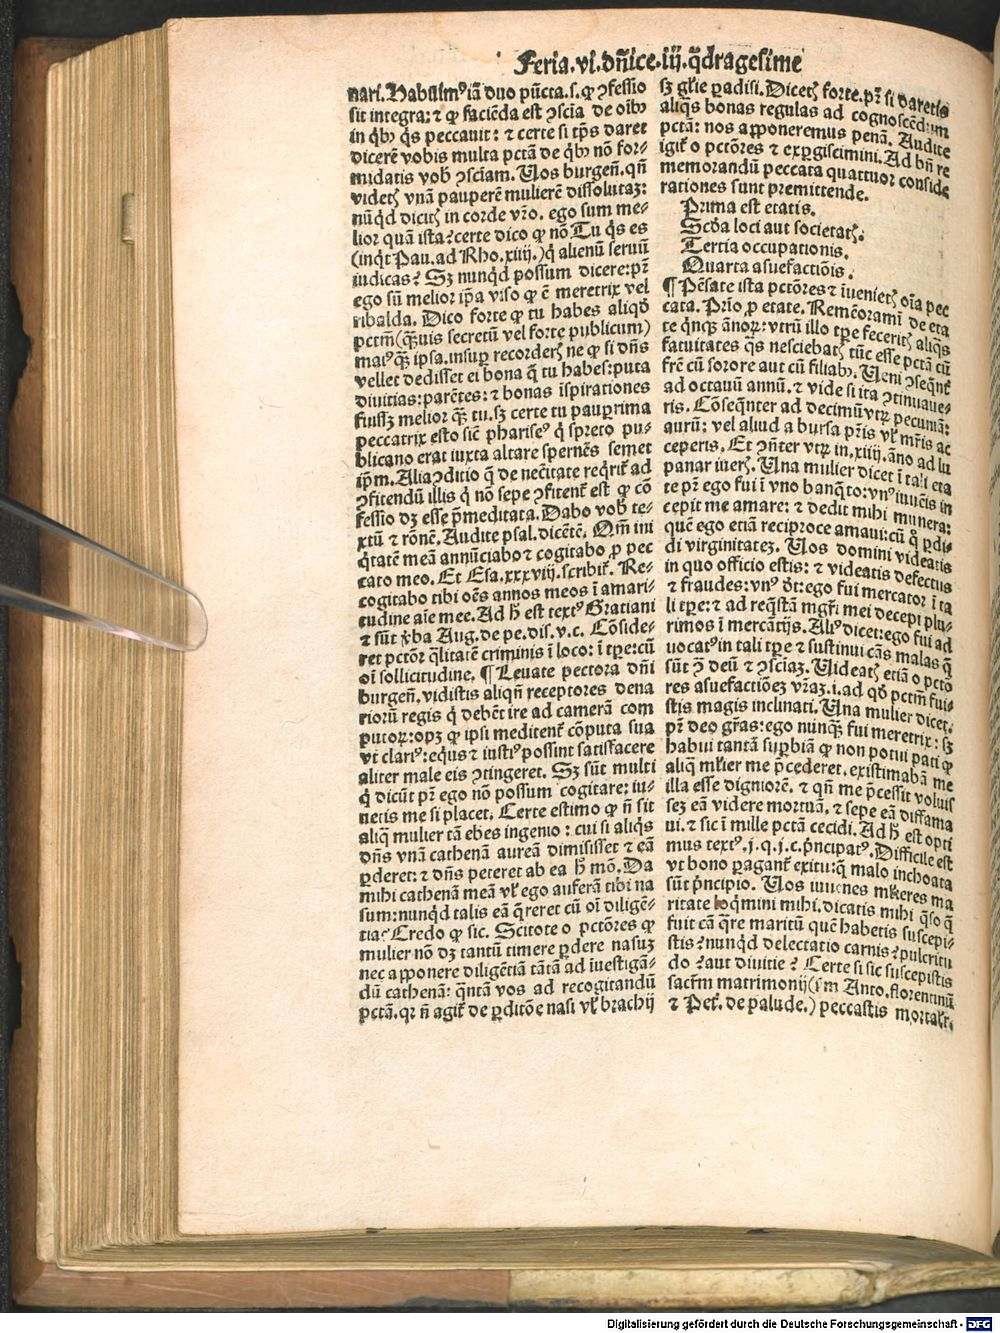 Feria.vi.dñice.iij.q̃dragesime
nari. Habuimꝰ iã duo pũcta.s. ꝙ ꝯfessio
sit integra: ⁊ ꝙ faciẽda est ꝯsciã de oĩbꝰ
in q̇bꝰ q̇s peccauit: ⁊ certe si tp̃s daret
dicerẽ vobis multa pctã de q̇bꝰ nõ for-
midatis vob̃ ꝯsciam. Uos burgeñ. qñ
videtꝭ vnã pauperẽ mulierẽ dissolutaꝫ:
nũq̇d dicitꝭ in corde vr̃o. ego sum me-
lior quã ista? certe dico ꝙ nõ. Tu q̇s es
(inq̇t Pau. ad Rho. xiiij.) q̇ alienũ seruũ
iudicas? Sꝫ nunq̇d possum dicere: pr̃
ego sũ melior ip̃a viso ꝙ ẽ meretrix vel
ribalda. Dico forte ꝙ tu habes aliqḋ
pctm̃ (q̃uis secretũ vel forte publicum)
maiꝰ q̃ꝫ ipsa. insuꝑ recorderꝭ ne ꝙ si dñs
vellet dedisset ei bona q̃ tu habes: puta
diuitias: parẽtes: ⁊ bonas ĩspirationes
fuissꝫ melior q̃ꝫ tu. sꝫ certe tu pauꝑrima
peccatrix esto sic̃ phariseꝰ q̇ spreto pu-
blicano erat iuxta altare spernẽs semet
ip̃m. Alia ꝯditio q̃ de nec̃itate req̇rit̃ ad
ꝯfitendũ illis q̇ nõ sepe ꝯfitent̃ est ꝙ cõ
fessio dꝫ esse p̃meditata. Dabo vob̃ te-
xtũ ⁊ rõnẽ. Audite psal. dicẽtẽ. Qm̃ ini
q̇tatẽ meã annũciabo ⁊ cogitabo ꝓ pec
cato meo. Et Esa. xxxviij. scribit̃. Re-
cogitabo tibi oẽs annos meos ĩ amari-
tudine aĩe mee. Ad h̃ est textꝰ Gratiani
⁊ sũt v̇ba Aug. de pe. dis. v. c. Cõside-
ret pctõr q̃litatẽ criminis ĩ loco: ĩ tꝑe: cũ
oĩ sollicitudine. ¶ Leuate pectora dñi
burgeñ. vidistis aliqñ receptores dena
riorũ regis q̇ debẽt ire ad camerã com
putoꝝ: opꝫ ꝙ ipsi meditent̃ cõputa sua
vt clariꝰ: equs̃ ⁊ iustiꝰ possint satisfacere
aliter male eis ꝯtingeret. Sꝫ sũt multi
q̇ dicũt pr̃ ego nõ possum cogitare: iu-
uetis me si placet. Certe estimo ꝙ ñ sit
aliq̃ mulier tã ebes ingenio: cui si aliq̇s
dñs vnã cathenã aureã dimisisset ⁊ eã
ꝑderet: ⁊ dñs peteret ab ea h̃ mõ. Da
mihi cathenã meã vl̃ ego auferã tibi na
sum: nunq̇d talis eã q̃reret cũ oĩ diligẽ-
tia? Credo ꝙ sic. Scitote o pctõres ꝙ
mulier nõ dꝫ tantũ timere ꝑdere nasuꝫ
nec apponere diligẽtiã tãtã ad ĩuestigã-
dũ cathenã: q̃ntã vos ad recogitandũ
pctã. qꝛ ñ agit̃ de ꝑditõe nasi vl̃ brachij
sꝫ gl̃ie ꝑadisi. Dicetꝭ forte. pr̃ si daretis
aliq̃s bonas regulas ad cognoscẽdum
pctã: nos apponeremus penã. Audite
igit̃ o pctõres ⁊ exꝑgiscimini. Ad bñ re
memorandũ peccata quattuor conside
rationes sunt premittende.
Prima est etatis.
Scḋa loci aut societatꝭ.
Tertia occupationis.
Quarta asuefactiõis.
¶ Pẽsate ista pctõres ⁊ ĩuenietꝭ oĩa pec
cata. Prĩo ꝓ etate. Remẽoramĩ de eta
te q̇nqꝫ ãnoꝝ: vtrũ illo tꝑe feceritꝭ aliq̃s
fatuitates q̃s nesciebatꝭ tũc esse pctã cũ
fr̃e cũ sorore aut cũ filiabꝰ. Ueni ꝯseq̃nt̃
ad octauũ annũ. ⁊ vide si ita ꝯtinuaue-
ris. Cõseq̃nter ad decimũ vtꝝ pecuniã:
aurũ: vel aliud a bursa pr̃is vl̃ mr̃is ac
ceperis. Et ꝯñter vtꝝ in. xiiij. ãno ad lu
panar iuerꝭ. Una mulier dicet ĩ tali eta
te pr̃ ego fui ĩ vno banq̃to: vnꝰ iuuẽis in
cepit me amare: ⁊ dedit mihi munera:
quẽ ego etiã reciproce amaui: cũ q̊ ꝑdi-
di virginitateꝫ. Uos domini videatis
in quo officio estis: ⁊ videatis defectus
⁊ fraudes: vnꝰ ḋt: ego fui mercator ĩ ta
li tꝑe: ⁊ ad req̃stã mgr̃i mei decepi plu-
rimos ĩ mercãtijs. Aliꝰ dicet: ego fui ad
uocatꝰ in tali tꝑe ⁊ sustinui cãs malas q̃
sũt ꝯ̃ deũ ⁊ ꝯsciãꝫ. Uideatꝭ etiã o pctõ
res asuefactiõeꝫ vr̃aꝫ. i. ad qḋ pctm̃ fui-
stis magis inclinati. Una mulier dicet.
pr̃ deo gr̃as: ego nunq̃ꝫ fui meretrix: sꝫ
habui tantã suꝑbiã ꝙ non potui pati ꝙ
aliq̃ ml̃ier me p̃cederet. existimabã me
illa esse digniorẽ. ⁊ qñ me p̃cessit voluis
seꝫ eã videre mortuã. ⁊ sepe eã diffama
ui. ⁊ sic ĩ mille pctã cecidi. Ad h̃ est opti
mus textꝰ. j. q. j. c. p̃ncipatꝰ. Difficile est
vt bono ꝑagant̃ exitu: q̃ malo inchoata
sũt p̃ncipio. Uos iuuenes ml̃ieres ma
ritate loq̇mini mihi. dicatis mihi q̃so q̃
fuit cã q̃re maritũ quẽ habetis suscepi-
stis? nunq̇d delectatio carnis? pulcritu
do? aut diuitie? Certe si sic suscepistis
sacr̃m matrimonij (ẜm Anto. florentinũ
⁊ Pet̃. de palude.) peccastis mortalr̃.
Digitalisierung gefördert durch die Deutsche Forschungsgemeinschaft - DFG